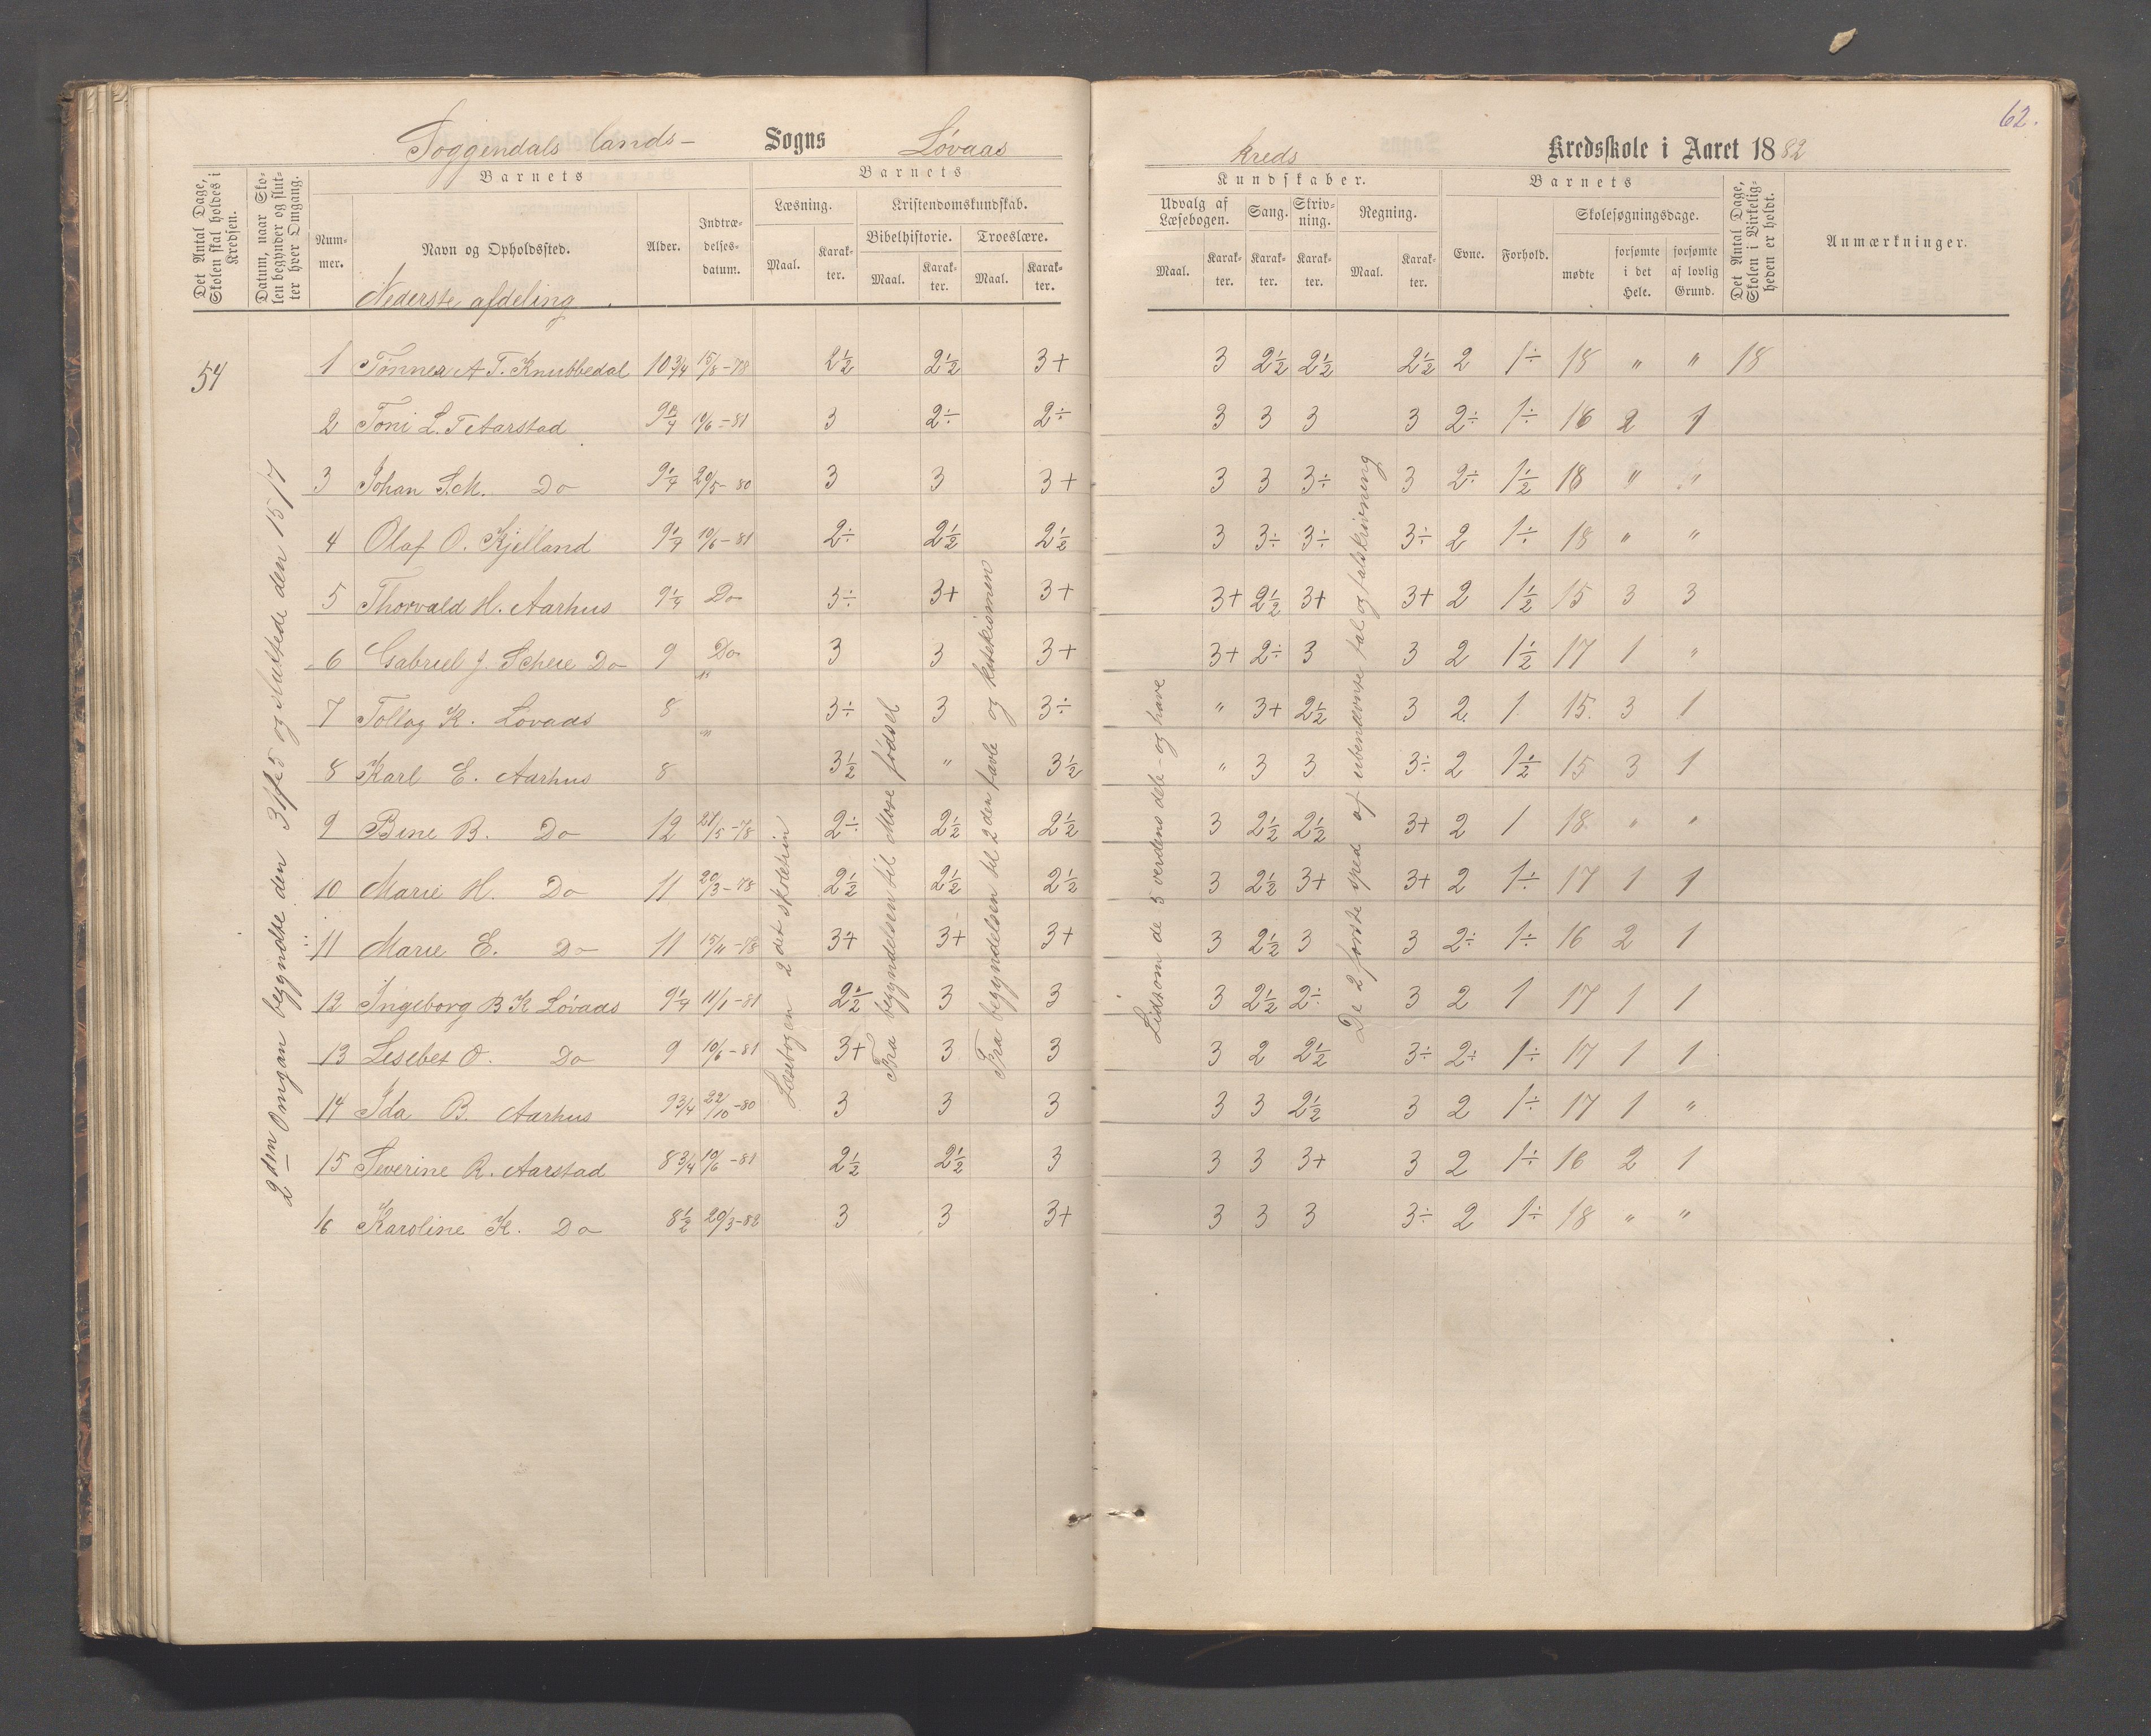 62.
Soggendals lands- Sogns Løvaas kreds Kredsskole i Aaret 1882
Det Antal Dage, Skolen skal holdes i Kredsen.
Datum, naar Skolen begynder og slutter hver Omgang.
Barnets
Nummer.
Navn og Opholdssted.
Nederste afdeling.
Alder.
Indtrædelsesdatum.
Barnets
Læsning.
Maal.
Karakter.
Kristendomskundskab.
Bibelhistorie.
Maal.
Karakter.
Troeslære.
Maal.
Karakter.
Kundskaber.
Udvalg af Læsebogen.
Maal.
Karakter.
Sang.
Karakter.
Skrivning.
Karakter.
Regning.
Maal.
Karakter.
Barnets
Evne.
Forhold.
Skolesøgningsdage.
mødte
forsømte i det Hele.
forsømte af lovlig Grund.
Det Antal Dage, Skolen i Virkeligheden er holdt.
Anmærkninger.
54
2den Omgan begyndte den og sluttede den 15/7
Læsebogen 2det skoletrin
Fra begyndelsen til Mose fødsel
Fra begyndelsen til 2den tavle og katekismen
Lidt om de 5 verdens dele - og have
De 2 første sped af ubenævnte tal og talskrivning
1 Tønnes A T. Knubbedal 10 3/4 15/8-78 2½ 2½ 3+ 3 2½ 2½ 2½ 2 1÷ 18 " " 18
2 Toni L. T Aarstad 10/6-81 3 2÷ 2÷ 3 3 3 3 2÷ 1÷ 16 2 1
3 Johan S.M. Do 9¼ 20/5-80 3 3 3+ 3 3 3÷ 3 2÷ 1½ 18 " "
4 Olaf O. Kjelland 9¼ 10/6-81 2÷ 2½ 2½ 3 3÷ 3÷ 3÷ 2 1÷ 18 " "
5 Thorvald H. Aarhus 9¼ Do 3÷ 3+ 3+ 3+ 2½ 3+ 3+ 2 1½ 15 3 3
6 Gabriel J. Scheie Do 9 Do 3 3 3+ 3+ 2÷ 3 3 2 1½ 17 1 "
7 Tollag K. Løvaas 8 " 3÷ 3 3÷ " 3+ 2½ 3 2 1 15 3 1
8 Karl E. Aarhus 8 " 3½ " 3½ " 3 3 3÷ 2 1½ 15 3 1
9 Bine B. Do 12 21/5-78 2÷ 2½ 2½ 3 2½ 2½ 3+ 2 1 18 " "
10 Marie H. Do 11 20/3-78 2½ 2½ 2½ 3 2½ 3+ 3+ 2 1÷ 17 1 1
11 Marie E. Do 11 15/11-78 3+ 3+ 3+ 3 2½ 3 3 2÷ 1÷ 16 2 1
12 Ingeborg B K Løvaas 9¼ 11/1-81 2½ 3 3 3 2½ 2÷ 3 2 1 17 1 1
13 Lesebet O. Do 9 10/6-81 3+ 3 3 3 2 2½ 3÷ 2÷ 1÷ 17 1 1
14 Ida B. Aarhus 9 3/4 22/10-80 3 3 3 3 3 2½ 3 2 1÷ 17 1 "
15 Severine R. Aarstad 8 3/4 10/6-81 2½ 2½ 3 3 3 3+ 3 2 1÷ 16 2 1
16 Karoline K. Do 8½ 20/3-82 3 3 3+ 3 3 3 3÷ 2 1÷ 18 " "